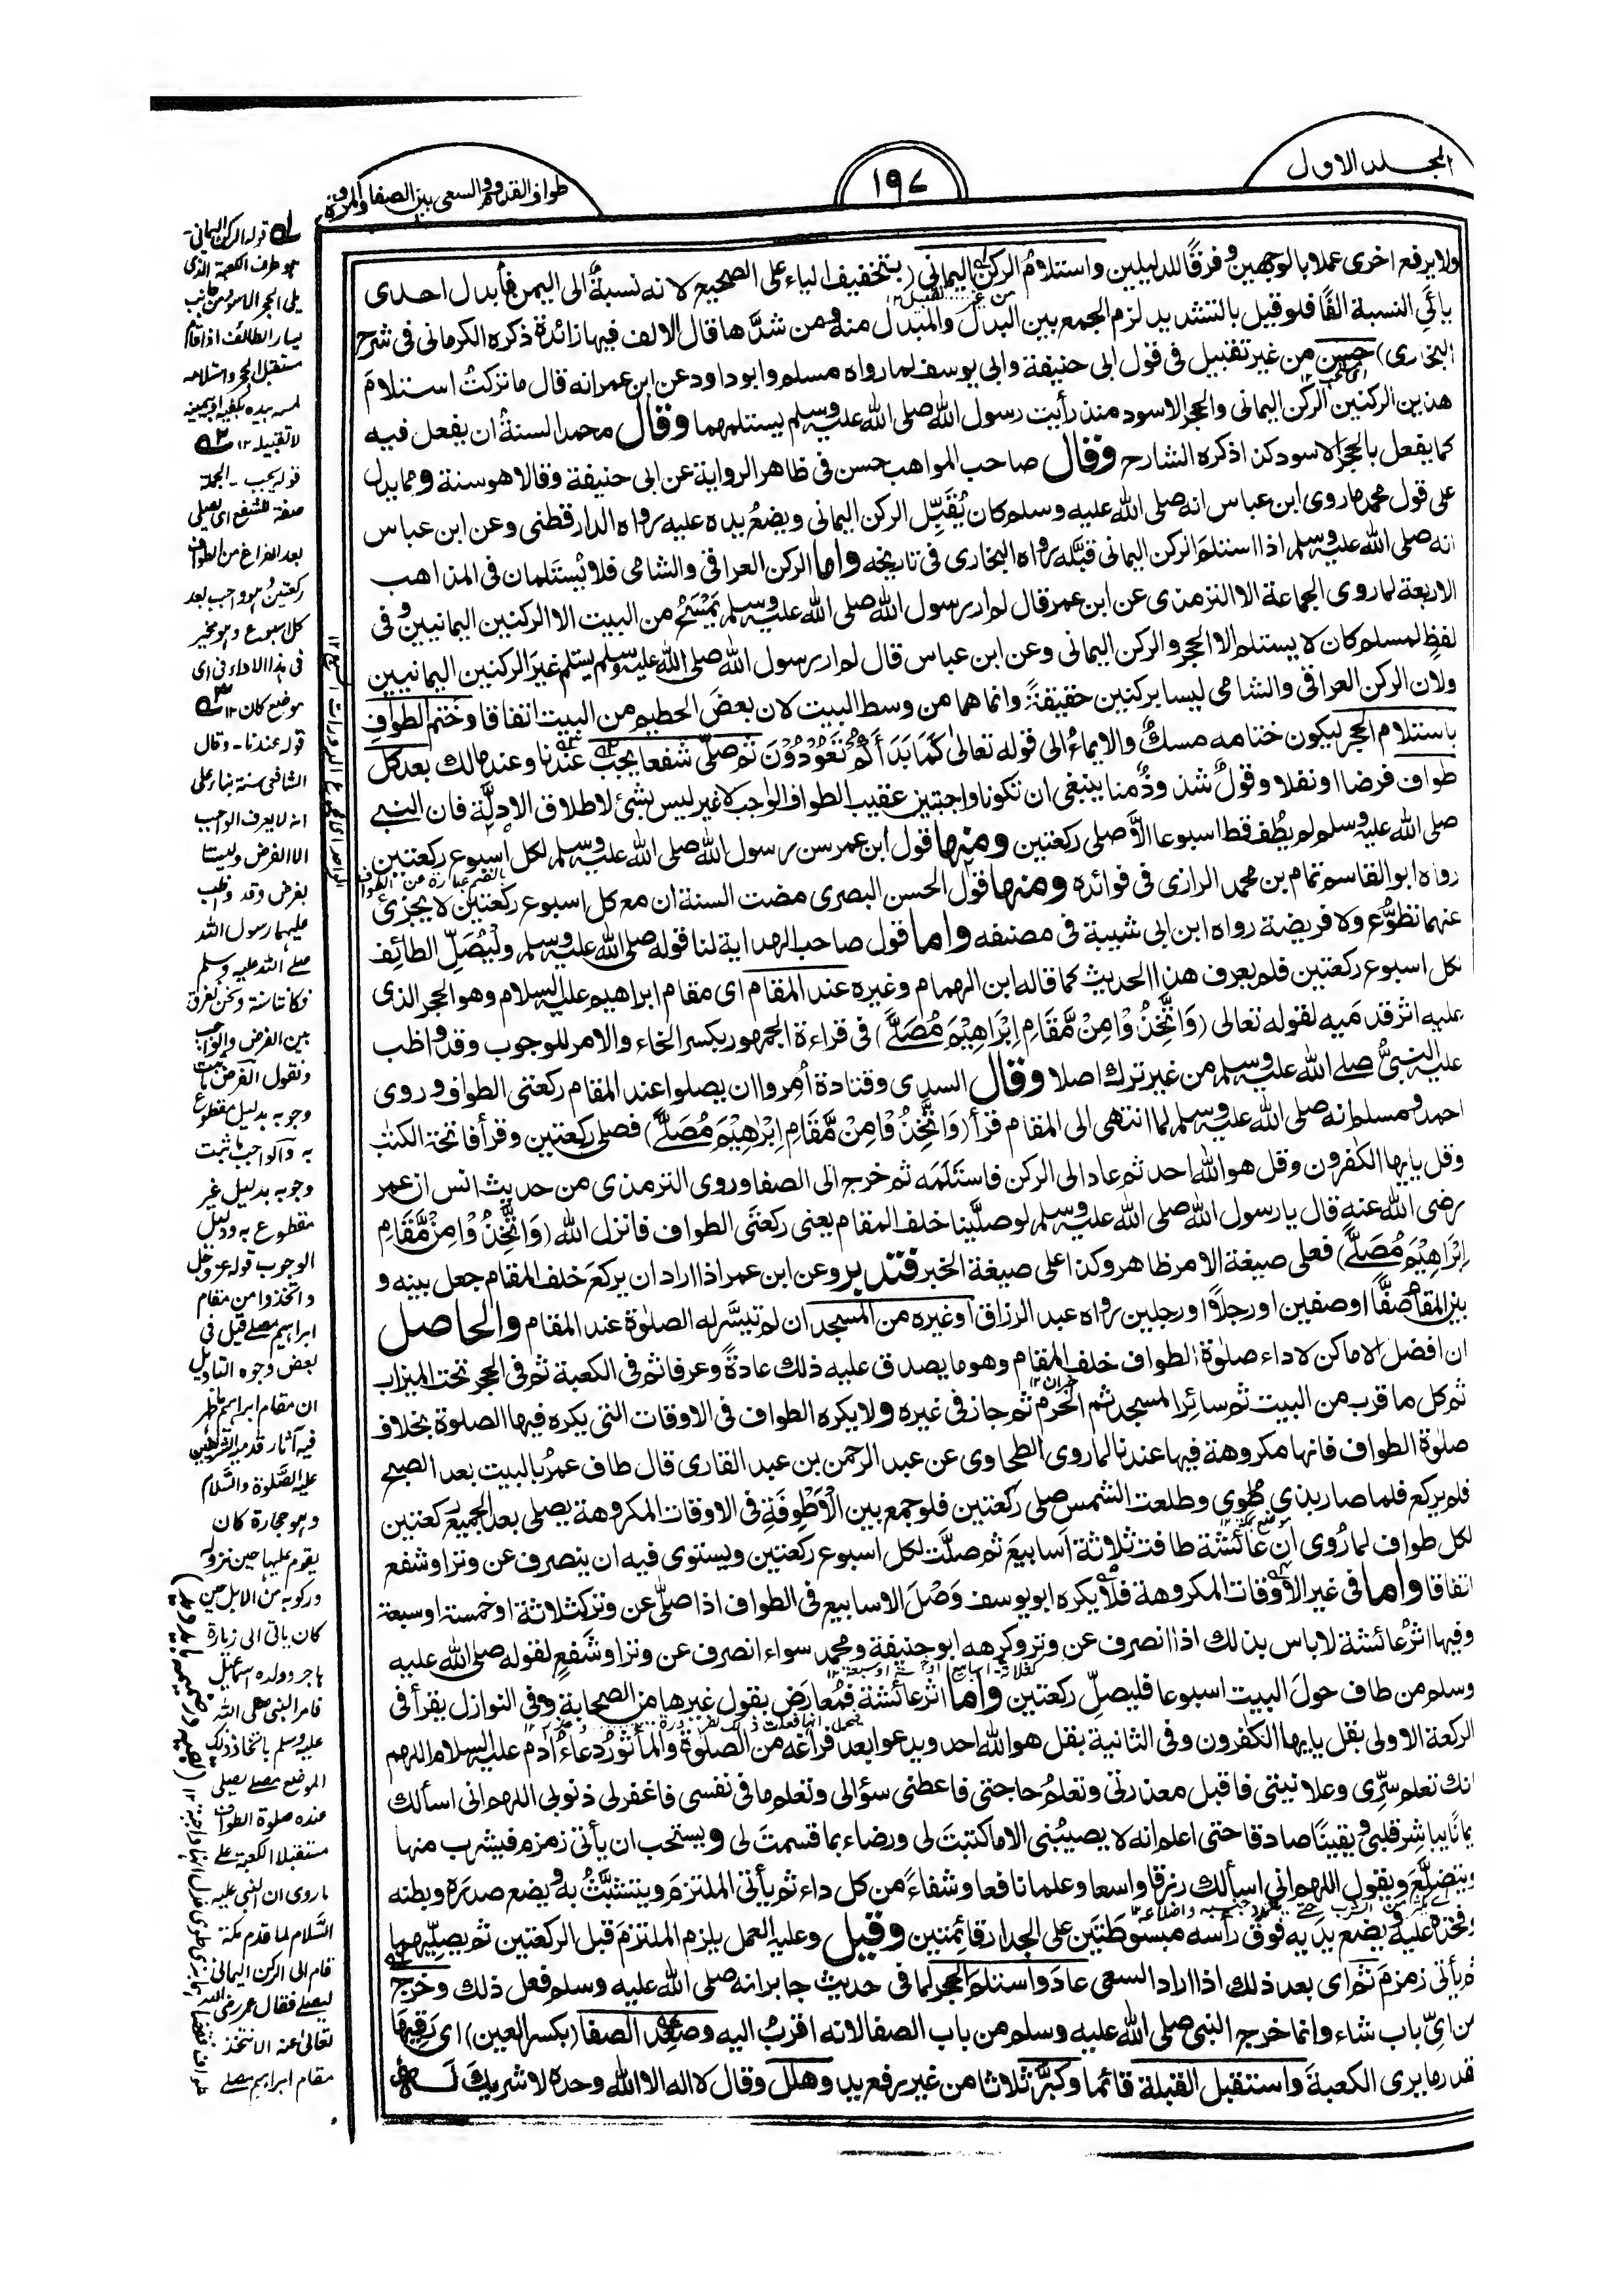 المجلد الاول
١٩٧
طواف القدوم والسعى بين الصفا والمروة
ولا يرفع اخرى عملا بالوجهين وفرقًا للدليلين واستلام الركن اليمانى (بتخفيف الياء على الصحيح لانه نسبة الى اليمن فأبدل احدى
يائَيِ النسبة الفًا فلو قيل بالتشديد لزم الجمع بين البدل والمبدل منه ومن شدّها قال الالف فيها زائدة ذكره الكرمانى فى شرح
البخارى) حسن من غير تقبيل فى قول ابى حنيفة وابى يوسف لما رواه مسلم وابوداود عن ابن عمر انه قال ما تركتُ استلامَ
هذين الركنين الركن اليمانى والحجر الاسود منذ رأيت رسول الله صلى الله عليه وسلم يستلمهما وقال محمد السنة أن يفعل فيه
كما يفعل بالحجر الاسود كذا ذكره الشارح وقال صاحب المواهب حسن فى ظاهر الرواية عن ابى حنيفة وقالا هو سنة ومما يدل
على قول محمد ما روى ابن عباس انه صلى الله عليه وسلم كان يُقَبِّل الركن اليمانى ويضعُ يده عليه رواه الدارقطنى وعن ابن عباس
انه صلى الله عليه وسلم اذا استلم الركن اليمانى قبّله رواه البخارى فى تاريخه واما الركن العراقى والشامى فلا يُستَلمان فى المذاهب
الاربعة لما روى الجماعة الا الترمذى عن ابن عمر قال لم ار رسول الله صلى الله عليه وسلم يَمْسَحُ من البيت الا الركنين اليمانيين وفى
لفظٍ لمسلم كان لا يستلم الا الحجر والركن اليمانى وعن ابن عباس قال لم ار رسول الله صلى الله عليه وسلم يستلم غيرَ الركنين اليمانيين
ولان الركن العراقى والشامى ليسا بركنين حقيقةً وانما هما من وسط البيت لان بعضَ الحطيم من البيت اتفاقا وختم الطواف
باستلام الحجر ليكون ختامه مسك والايماءُ الى قوله تعالىٰ كَمَا بَدَأَكُمْ تَعُوْدُوْنَ ثم صلّى شفعا يجب عندنا وعند مالك بعد كل
طواف فرضا او نفلا وقولُ شذ وذٍ منا ينبغى ان تكونا واجبتين عقيب الطواف الواجب لا غير ليس بشئ لاطلاق الادلّة فان النبى
صلى الله عليه وسلم لم يطُف قط اسبوعا الّا صلى ركعتين ومنها قول ابن عمر سن رسول الله صلى الله عليه وسلم لكل اسبوع ركعتين
رواه ابوالقاسم تمام بن محمد الرازى فى فوائده ومنها قول الحسن البصرى مضت السنة ان مع كل اسبوع ركعتين لا يجزئ
عنهما تطوّع ولا فريضة رواه ابن ابى شيبة فى مصنفه واما قول صاحب الهداية لنا قوله صلى الله عليه وسلم ولْيُصَلِّ الطائف
لكل اسبوع ركعتين فلم يعرف هذا الحديث كما قاله ابن الهمام وغيره عند المقام اى مقام ابراهيم عليه السلام وهو الحجر الذى
عليه اثر قدمَيه لقوله تعالى (وَاتَّخِذُوْا مِنْ مَّقَامِ اِبْرَاهِيْمَ مُصَلًّى) فى قراءة الجمهور بكسر الخاء والامر للوجوب وقد واظب
عليه النبىُّ صلے الله عليه وسلم من غير ترك اصلا وقال السدى وقتادة أُمِروا ان يصلوا عند المقام ركعتى الطواف وروى
احمد ومسلم انه صلى الله عليه وسلم لما انتهى الى المقام قرأ (وَاتَّخِذُوْا مِنْ مَّقَامِ اِبْرَاهِيْمَ مُصَلًّى) فصلى ركعتين وقرأ فاتحة الكتٰب
وقل يايها الكٰفرون وقل هو الله احد ثم عاد الى الركن فاستَلَمَه ثم خرج الى الصفا وروى الترمذى من حديث انس ان عمر
رضى الله عنه قال يا رسول الله صلى الله عليه وسلم لو صلَّينا خلف المقام يعنى ركعتَى الطواف فانزل الله (وَاتَّخِذُوْا مِنْ مَّقَامِ
اِبْرَاهِيْمَ مُصَلًّى) فعلى صيغة الامر ظاهر وكذا على صيغة الخبر فتدبر وعن ابن عمر اذا اراد ان يركعَ خلف المقام جعل بينه و
بين المقام صفًّا او صفين او رجلًا او رجلين رواه عبد الرزاق او غيره من المسجد ان لم تيسَّر له الصلوٰة عند المقام والحاصل
ان افضل الاماكن لاداء صلوٰة الطواف خلف المقام وهو ما يصدق عليه ذلك عادةً وعرفا ثم فى الكعبة ثم فى الحجر تحت الميزاب
ثم كل ما قرب من البيت ثم سائر المسجد ثم الحرم ثم جاز فى غيره ولا يكره الطواف فى الاوقات التى يكره فيها الصلوة بخلاف
صلوٰة الطواف فانها مكروهة فيها عندنا لما روى الطحاوى عن عبد الرحمن بن عبد القارى قال طاف عمرُ بالبيت بعد الصبح
فلم يركع فلما صار بذى طوى وطلعت الشمس صلى ركعتين فلو جمع بين الْاَطْوِفَةِ فى الاوقات المكروهة يصلى بعد الجميع ركعتين
لكل طواف لما رُوى ان عائشة طافت ثلاثة أسابيعَ ثم صلَّت لكل اسبوع ركعتين ويستوى فيه ان ينصرف عن وتر او شفع
اتفاقا واما فى غير الاوقات المكروهة فلا يكره ابويوسف وَصْلَ الاسابيع فى الطواف اذا صلّى عن وتر كثلاثة او خمسة او سبعة
وفيها اثرُ عائشة لا باس بذلك اذا انصرف عن وتر وكرهه ابوحنيفة ومحمد سواء انصرف عن وتر او شَفعٍ لقوله صلى الله عليه
وسلم من طاف حولَ البيت اسبوعا فليصلّ ركعتين واما اثر عائشة فمُعارَض بقول غيرها من الصحابة وفى النوازل يقرأ فى
الركعة الاولى بقل يايها الكٰفرون وفى الثانية بقل هو الله احد ويدعو بعد فراغه من الصلوة والمأثور دعاءُ آدم عليه السلام اللهم
انك تعلم سرِّى وعلانيتى فاقبل معذرتى وتعلمُ حاجتى فاعطنى سؤالى وتعلم ما فى نفسى فاغفرلى ذنوبى اللهم انى اسألك
ايمانًا يباشر قلبى ويقينًا صادقا حتى اعلم انه لا يصيبُنى الا ما كتبتَ لى ورضاء بما قسمتَ لى ويستحب ان يأتى زمزم فيشرب منها
ويتضلَّعَ ويقول اللهم انى اسألك رزقا واسعا وعلما نافعا وشفاءً من كل داء ثم يأتى الملتزمَ ويتشبَّثُ به ويضع صدرَه وبطنه
وفخذه عليه ويضع يدَيه فوق رأسه مبسوطَتَين على الجدار قائمتين وقيل وعليه العمل يلزم الملتزمَ قبل الركعتين ثم يصلِّيهما
ثم يأتى زمزمَ ثم اى بعد ذلك اذا اراد السعى عادَ واستلم الحجر لما فى حديث جابر انه صلى الله عليه وسلم فعل ذلك وخرج
من اىِّ باب شاء وانما خرج النبى صلى الله عليه وسلم من باب الصفا لانه اقربُ اليه وصعِد الصفا (بكسر العين) اى رَقِيَها
قدر ما يرى الكعبةَ واستقبل القبلة قائما وكبرَّ ثلاثا من غير رفع يد وهلل وقال لا اله الا الله وحده لا شريك لــه
قوله الركن اليمانى-
هو طرف الكعبة الذى
يلى الحجر الاسود من جانب
يسار الطائف اذا قام
مستقبل الحجر واستلامه
لمسه بيده بكفيه او بيمينه
لا تقبيله ١٢
قوله يجب - الجملة
صفة للشفع اى يصلى
بعد الفراغ من الطواف
ركعتين وهو واجب بعد
كل اسبوع وهو مخير
فى هذا الاداء فى اى
موضع كان ١٢
قوله عندنا - وقال
الشافعى سنة بناء على
انه لا يعرف الواجب
الا الفرض وليستا
بفرض وقد واظب
عليهما رسول الله
صلے الله عليه وسلم
فكانتا سنة ونحن نفرق
بين الفرض والواجب
ونقول الفرض ما يثبت
وجوبه بدليل مقطوع
به والواجب ما ثبت
وجوبه بدليل غير
مقطوع به ودليل
الوجوب قوله عز وجل
واتخذوا من مقام
ابراهيم مصلے قيل فى
بعض وجوه التاويل
ان مقام ابراهيم ما ظهر
فيه آثار قدميه الشريفين
عليه الصّلوة والسّلام
وهو حجارة كان
يقوم عليها حين نزوله
وركوبه من الابل حين
كان ياتى الى زيارة
هاجر وولده اسماعيل
فامر النبى صلى الله
عليه وسلم باتخاذ ذلك
الموضع مصلے يصلى
عنده صلوة الطواف
مستقبلا الكعبة على
ما روى ان النبى عليه
السَّلام لما قدم مكة
قام الى الركن اليمانى
ليصلے فقال عمر رضى الله
تعالىٰ عنه الا نتخذ
مقام ابراهيم مصلے